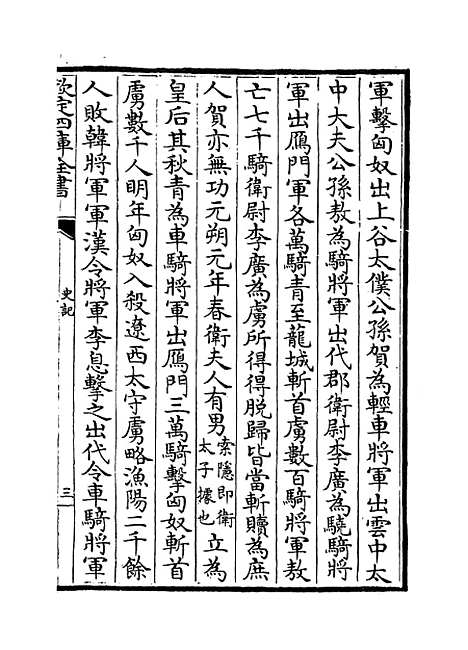 軍擊匈奴出上谷太僕公孫賀為輕車將軍出雲中太
中大夫公孫敖為騎將軍出代郡衛尉李廣為驍騎將
軍出鴈門軍各萬騎青至龍城斬首虜數百騎將軍敖
亡七千騎衛尉李廣為虜所得得脫歸皆當斬贖為庶
人賀亦無功元朔元年春衛夫人有男索隱即衛太子據也立為
皇后其秋青為車騎將軍出鴈門三萬騎擊匈奴斬首
虜數千人明年匈奴入殺遼西太守虜略漁陽二千餘
人敗韓將軍軍漢令將軍李息擊之出代令車騎將軍
欽定四庫全書
史記
三